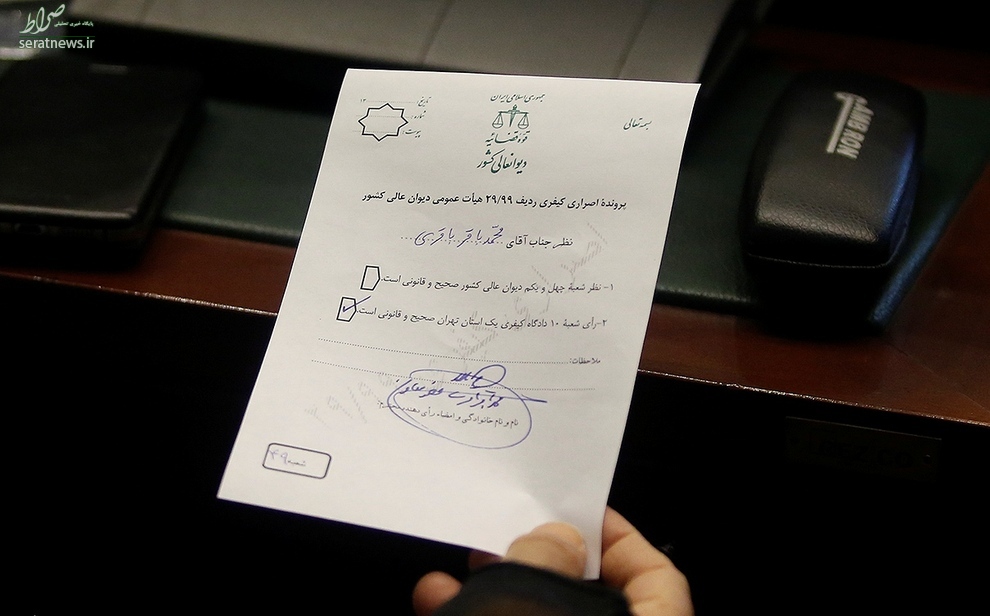 صراط
پایگاه خبری تحلیلی
seratnews.ir
جمهوری اسلامی ایران
قوه قضائیه
دیوانعالی کشور
بسمه تعالی
تاریخ
شماره
پیوست
پروندۀ اصراری کیفری ردیف ۲۹/۹۹ هیأت عمومی دیوان عالی کشور
نظر جناب آقای محمد باقر باقری
۱- نظر شعبۀ چهل و یکم دیوان عالی کشور صحیح و قانونی است.
۲-رأی شعبۀ ۱۰ دادگاه کیفری یک استان تهران صحیح و قانونی است.
ملاحظات:
نام و نام خانوادگی و امضاء رأی دهنده
شعبه ۴۹
AMBRON